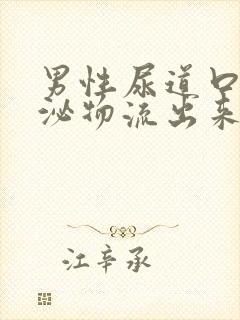 男性尿道口
泌物流出来
江辛承